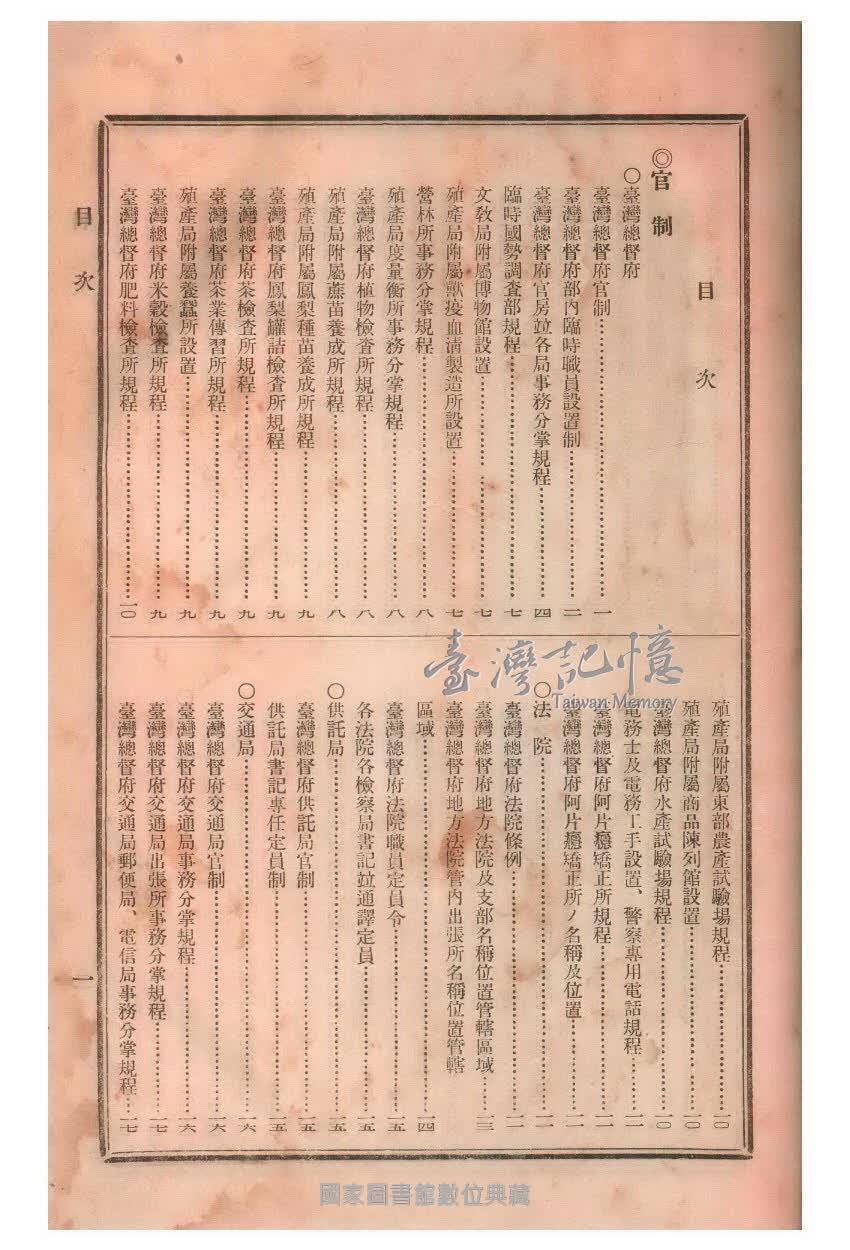 目次
◎官制
○臺灣總督府
臺灣總督府官制……一
臺灣總督府部內臨時職員設置制……二
臺灣總督府官房竝各局事務分掌規程……四
臨時國勢調查部規程……七
文敎局附屬博物館設置……七
殖產局附屬獸疫血淸製造所設置……七
營林所事務分掌規程……八
殖產局度量衡所事務分掌規程……八
臺灣總督府植物檢查所規程……八
殖產局附屬蔗苗養成所規程……八
殖產局附屬鳳梨種苗養成所規程……九
臺灣總督府鳳梨罐詰檢查所規程……九
臺灣總督府茶檢查所規程……九
臺灣總督府茶業傳習所規程……九
殖產局附屬養蠶所設置……九
臺灣總督府米穀檢查所規程……九
臺灣總督府肥料檢查所規程……一〇
殖產局附屬東部農產試驗場規程……一〇
殖產局附屬商品陳列館設置……一〇
臺灣總督府水產試驗場規程……一〇
電務士及電務工手設置、警察專用電話規程……一一
臺灣總督府阿片癮矯正所規程……一一
臺灣總督府阿片癮矯正所ノ名稱及位置……一一
○法院……一一
臺灣總督府法院條例……一一
臺灣總督府地方法院及支部名稱位置管轄區域……一三
臺灣總督府地方法院管內出張所名稱位置管轄
區域……一四
臺灣總督府法院職員定員令……一五
各法院各檢察局書記竝通譯定員……一五
○供託局……一五
臺灣總督府供託局官制……一五
供託局書記專任定員制……一五
○交通局……一六
臺灣總督府交通局官制……一六
臺灣總督府交通局事務分掌規程……一六
臺灣總督府交通局出張所事務分掌規程……一七
臺灣總督府交通局郵便局、電信局事務分掌規程……一七
目次
一
臺灣記憶
Taiwan Memory
國家圖書館數位典藏